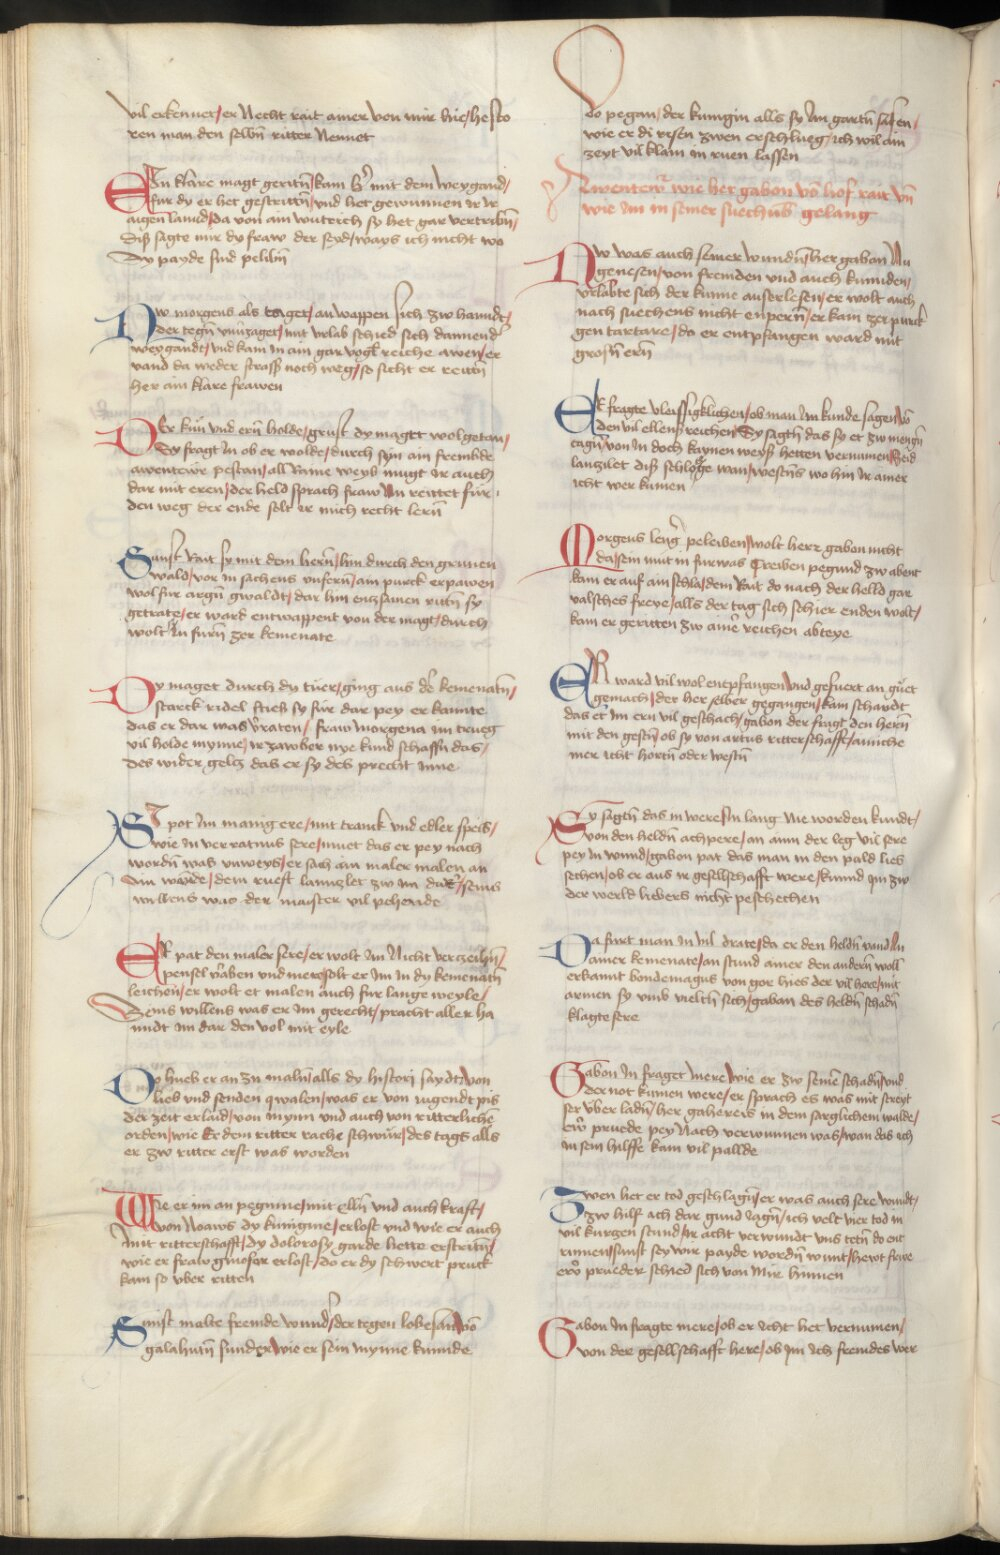 vil erkennet/er Necht rait ainer von mir hie/hesto
ren man den selbn ritter Nennet
Ein klare magt geritn/kam h̄ mit dem weygand/
fur dy er het gestrittn/vnd het gewunnen ir ir
aigen lannd/da von am wuterich sy het gar vertribn/
Diß sagte mir dy fraw der seyd/ways ich nicht wo
Dy payde sind pelibn
Nw morgens als taget/an wappen sich zw hanndt/
der tegn vnuerzaget/mit vrlab schied sich dannend
weygandt/vnd kam in ain gar vogl reiche awen/er
vand da weder strass noch weg/so sicht er reittn
her ain klare frawen
Der kun vnd ern holde/grust dy maget wolgetan/
Sy fragt in ob er wolde/durch syn ain frembde
awentewr pestan/all Raine weyb mugt ir auch
dar mit eren/der held sprach fraw Nu reittet fur/
den weg der ende solt ir mich recht lern
Sanft Rait sy mit dem hern/hin durch den grunen
wald/vor in sachens vnfern/ain purck erpawen
wol fur argn gwaldt/dar hin entzsamen rittn sy
getrate/er ward entwappent von der magt/durch
wolt in furn zer kemenate
Dy maget durch dy tuer/ging aus der kemenatn/
starck ridel sties sy fur dar pey er kannte
das er dar was verraten/fraw morgena im trueg
vil holde mynne/ir zawber nye kund schaffn das/
des wider geltz das er sy des precht inne
Sy pot im manig ere/mit tranck vnd edler speis/
wie in ver ratnus sere/muet das er pey nach
wordn was vnweys/er sach ain maler malen an
Ain wande/dem ruest lannzlet zw im dar/seins
willens was der maister vil pehende
Er pat den maler sere/er wolt im Nicht verczeihn/
pensel varben vnd mere/solt er im in dy kemenatn
leichen/er wolt et malen auch fur lange weyle/
Seins willens was er im gerecht/pracht aller ha
nndt im dar den vol mit eyle
Do hueb er an zu maln/alls dy histori saydt/von
lieb vnd senden qwalen/was er von iugendt pis
der zeit erlaid/von mynn vnd auch von ritterlichē
orden/wie Er dem ritter rache schwur/des tags alls
er zw ritter erst was worden
Wie er im an pegunne/mit elln vnd auch kraft/
von Noaws dy kunigine/erlost vnd wie er auch
mit ritterschafft/dy dolorosy garde hette erstrittn/
wie er fraw ginofer erlost/do er dy schwert pruck
kam so vber ritten
Sunst malte fremde wund/der tegen lobesam/vō
galahutn sunder/wie er sein mynne kunnde
Do pegan/der kunigin alls sy im gartn sasen/
wie er di risen zwen erschlueg/ich wil ain
zeyt vil klain in ruen lassen
Awentewr wie her gabon vō hof rait vn̄
wie im in seiner suechūs gelang
Nw was auch seiner wundn/her gabon Nu
genesen/von fremden vnd auch kunnden/
vrlabte sich der kunne auserlesen/er wolt auch
nach suechens nicht enpern/er kam zer purck
gen tartare/da er entpfangen ward mit
grosn ern
Er fragte vleissigklichen/ob man im kunde sagen/vō
den vil ellens reichen/Sy sagtn das sy et zw mengn
tagn/von in doch kaynen weys hetten vernumen/Seid
lanzilet diß schlosse wan/westens wo hin ir ainer
icht wer kumen
Morgens leng peleiben/wolt herr gabon nicht
da/sein mut in furwas Treiben pegund zw abent
kam er auf ain schla/dem Rait do nach der helld gar
valsches freye/alls der tag sich schier enden wolt/
kam er geritten zw ainer reichen abteye
Er ward vil wol entpfangen/vnd gefuert an guet
gemach/det her selber gegangen/kam schawdt
das et im ern vil geschach/gabon der fragt den hern
mit den gestn/ob sy von artus ritterschafft/ainiche
mer icht hortn oder westn
Sy sagtn das in were/In lang Nie worden kundt/
von den heldn achpere/an ainn der leg vil sere
pey in wund/gabon pat das man in den pald lies
sechen/ob er aus ir gesellschafft were/kunnd im zw
der werld liebers nicht peschechen
Da furt man in vil drate/da er den heldn vand/In
ainer kemenate/an stund ainer den andern woll
erkannt bondemagus von gor hies der vil here/mit
armen sy vmb vielctn sich/gaban des heldn schadn
klagte sere
Gabon in fraget mere/wie er zw seinē schadn/vnd
der not kumen were/er sprach es was mit streyt
ser vber ladn/her gaheries in dem sarglichem walde/
ewr pruede pey Nach verwunnen was/wan das ich
in sein hilffe kam vil pallde
Zwen het er tod geschlagn/er was auch sere wundt/
zw hilf ach dar gund iagn/ich velt vier tod in
vil kurzen stund/ir acht verwundt vns tetn do ent
rinnen/sunst sey wir payde wordn wunt/hewt frwe
ewr prueder schied sich von mir hinnen
Gabon in fragte mere/ob er icht het vernumen/
von der gesellschafft here/ob im ich fremdes wer